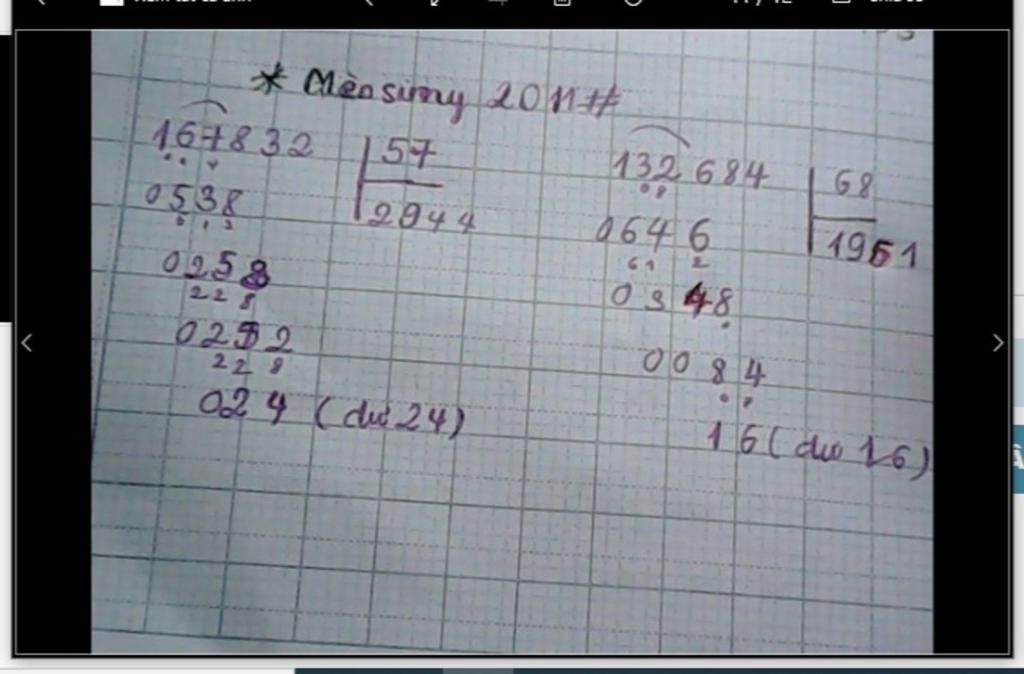 * Mènsimy 2011#
167832 | 57
0538 | 2944
0258
0252
024 (dư 24)
132684 | 68
0646 | 1951
0348
0084
16 (dư 16)